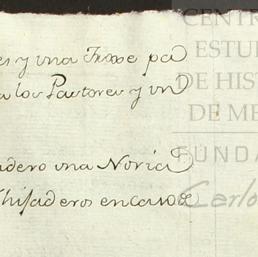 es y una Torre pa
a los Pastores y un
adero una Noria
Chifaderos en cada
CENTR
ESTU
DE HIS
DE ME
FUNDA
Carlo